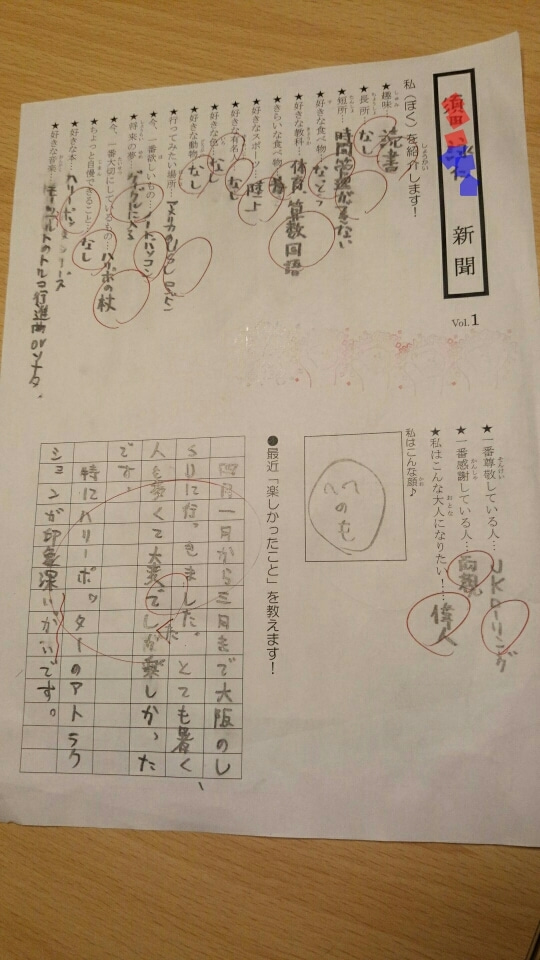 新聞
Vol.1
私(ぼく)を紹介します!
★趣味…読書
★長所…なし
★短所…時間管理ができない
★好きな食べ物…なっとう
★好きな教科…体育 算数 国語
★きらいな食べ物…
★好きなスポーツ…陸上
★好きな有名人…なし
★好きな色…なし
★好きな動物…なし
★行ってみたい場所…アメリカの
★今、一番欲しいもの…ノートパソコン
★将来の夢…グーグルに入る
★今、一番大切にしているもの…ハリポの杖
★ちょっと自慢できること…なし
★好きな本…ハリーポッターシリーズ
★好きな音楽…モーツァルトのトルコ行進曲orソナタ、
★一番尊敬している人…J.Kローリング
★一番感謝している人…両親
★私はこんな大人になりたい!…偉人
私はこんな顔♪
へへのも
●最近「楽しかったこと」を教えます!
四月一日から三日まで大阪のし
SUに行っきました。とても暑く、
人も多くて大変でしたが楽しかった
です。
特にハリーポッターのアトラク
ションが印象深いがいです。